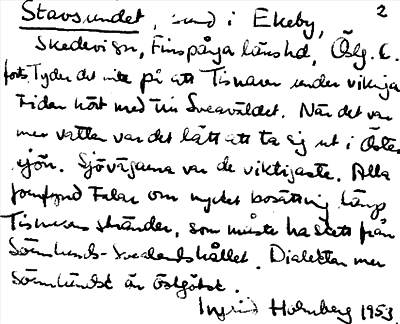 2
Stavsundet, sund i Ekeby,
Skedevi sn, Finspånga länshd, Östg. l.
forts. Tyder det inte på att Tisnaren under vikinga
tiden hört med till Sveaväldet. När det var
mer vatten var det lätt att ta sig ut i Öster
sjön. Sjövägarna var de viktigaste. Alla
fornfynd talar om mycket bosättning längs
Tisnarens stränder, som måste ha skett från
Sörmlands-Svealandshållet. Dialekten mer
Sörmländsk än östgötsk.
Ingrid Holmberg 1953.